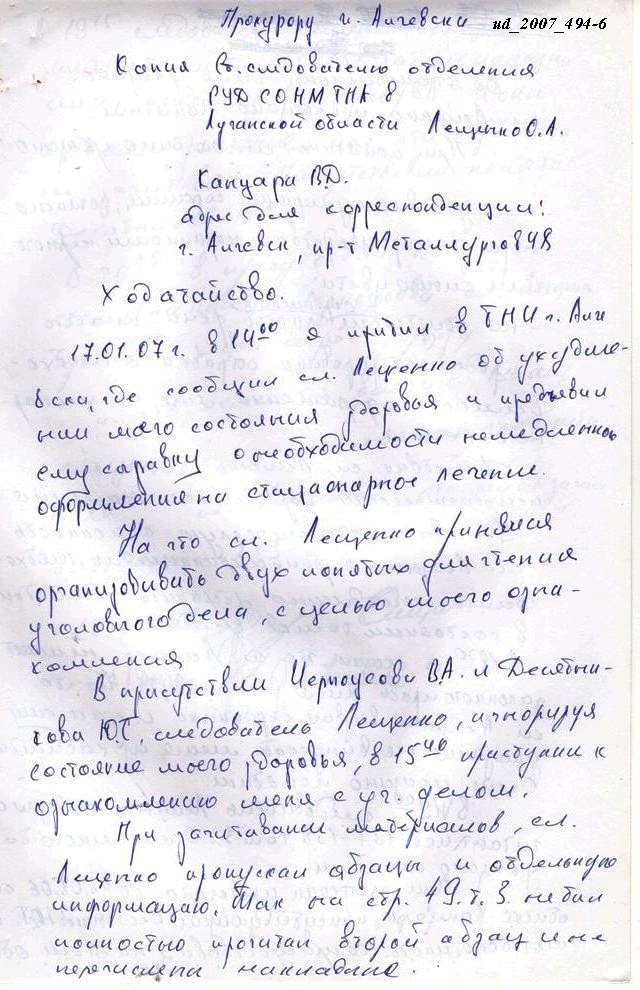 Прокурору г. Алчевска
ud_2007_494-6
Копия Ст. следователю отделения
РУД СО НМ ГНА в
Луганской области Лещенко О.А.
Капуара В.Д.
адрес для корреспонденции:
г. Алчевск, пр-т Металлургов
Ходатайство.
17.01.07 г. в 14⁰⁰ я прибыл в ГНИ г. Алче
вска, где сообщил сл. Лещенко об ухудше-
нии моего состояния здоровья и предъявил
ему справку о необходимости немедленного
оформления на стационарное лечение.
На что сл. Лещенко принялся
организовывать двух понятых для чтения
уголовного дела, с целью моего озна-
комления
В присутствии Черноусова В.А. и Десятни-
кова Ю.Г. следователь Лещенко, игнорируя
состояние моего здоровья, в 15⁴⁰ приступил к
ознакомлению меня с уг. делом.
При зачитывании материалов, сл.
Лещенко пропускал абзацы и отдельную
информацию. Так на стр. 49 т. 3 не был
полностью прочитан второй абзац и не
перечислены накладные.